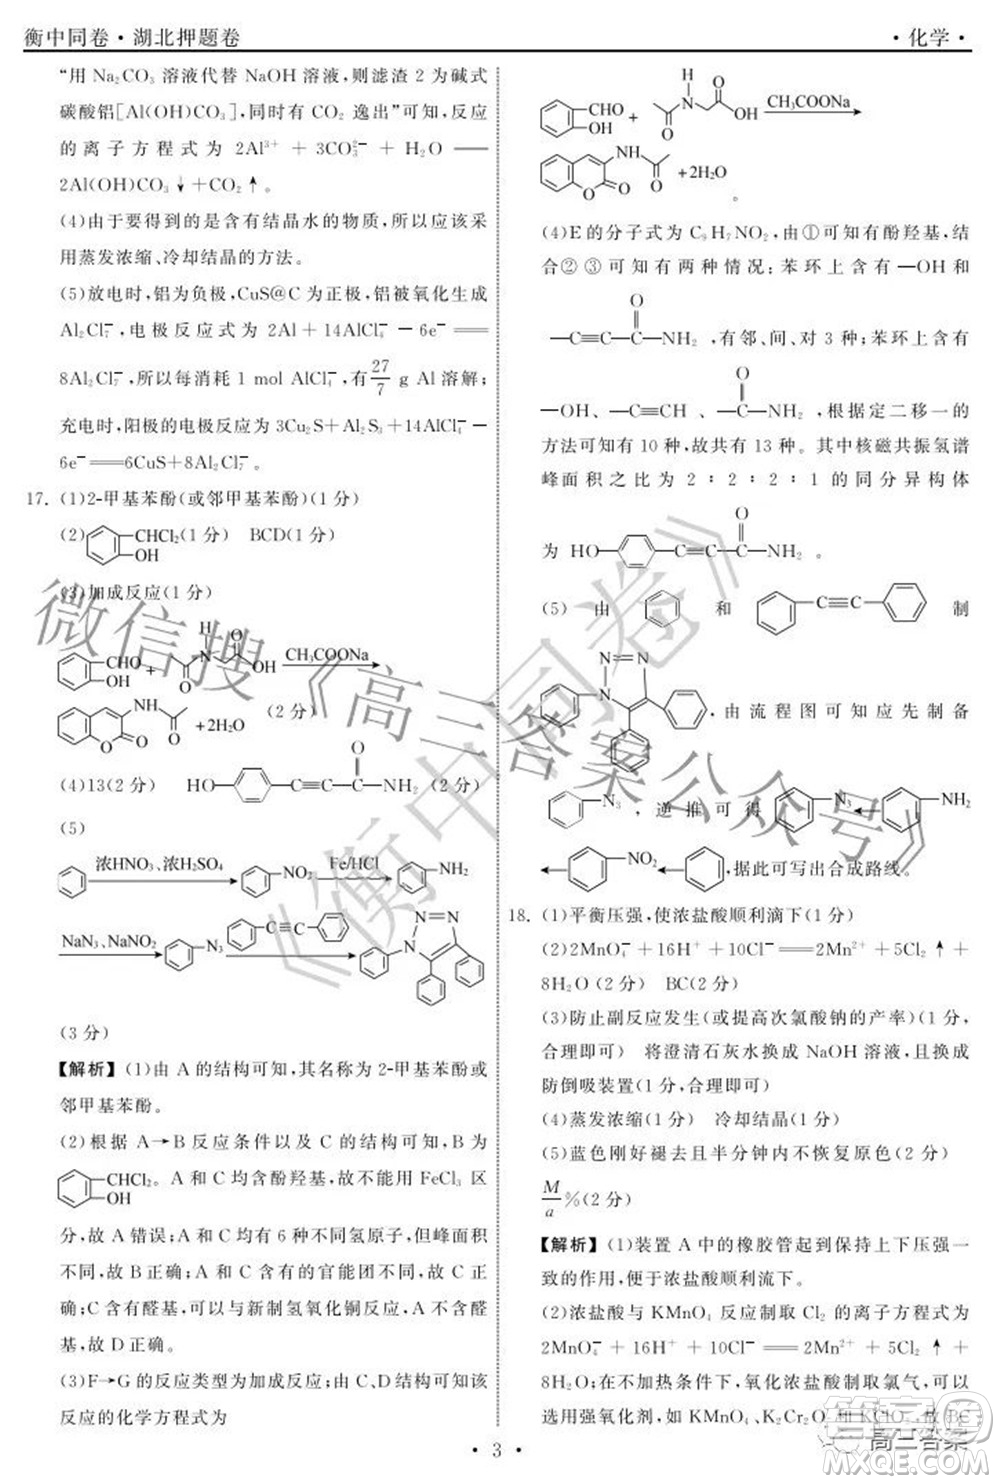 衡中同卷·湖北押题卷
·化学·
“用 Na₂CO₃ 溶液代替 NaOH 溶液,则滤渣 2 为碱式
碳酸铝[Al(OH)CO₃],同时有 CO₂ 逸出”可知,反应
的离子方程式为 2Al³⁺ + 3CO₃²⁻ + H₂O ══
2Al(OH)CO₃↓+CO₂↑。
(4)由于要得到的是含有结晶水的物质,所以应该采
用蒸发浓缩、冷却结晶的方法。
(5)放电时,铝为负极,CuS@C 为正极,铝被氧化生成
Al₂Cl₇⁻,电极反应式为 2Al+14AlCl₄⁻-6e⁻══
8Al₂Cl₇⁻,所以每消耗 1 mol AlCl₄⁻,有 27/7 g Al 溶解;
充电时,阳极的电极反应为 3Cu₂S+Al₂S₃+14AlCl₄⁻-
6e⁻══6CuS+8Al₂Cl₇⁻。
17. (1)2-甲基苯酚(或邻甲基苯酚)(1 分)
(2) CHCl₂ OH (1 分) BCD(1 分)
(3)加成反应(1 分)
CHO OH + H N O OH O CH₃COONa
H N O O O +2H₂O (2 分)
(4)13(2 分) HO C≡C O NH₂ (2 分)
(5)
浓HNO₃、浓H₂SO₄ NO₂ Fe/HCl NH₂
NaN₃、NaNO₂ N₃ C≡C N N N
(3 分)
【解析】(1)由 A 的结构可知,其名称为 2-甲基苯酚或
邻甲基苯酚。
(2)根据 A→B 反应条件以及 C 的结构可知,B 为
CHCl₂ OH 。A 和 C 均含酚羟基,故不能用 FeCl₃ 区
分,故 A 错误;A 和 C 均有 6 种不同氢原子,故
B 正确;A 与 C 含有的官能团不同,故 C 正
确;C 含有醛基,可以与新制氢氧化铜反应,A 不含醛
基,故 D 正确。
(3)F→G 的反应类型为加成反应。由 C、D 结构可知该
反应的化学方程式为
CHO OH + H N O OH O CH₃COONa
NH O O O +2H₂O 。
(4)E 的分子式为 C₉H₇NO₂,由①可知有酚羟基,结
合②③可知有两种情况:苯环上含有 —OH 和
—C≡C—C O —NH₂ ,有邻、间、对 3 种;苯环上含有
—OH、—C≡CH 、—C O —NH₂ ,根据定二移一的
方法可知有 10 种,故共有 13 种。其中核磁共振氢谱
峰面积之比为 2∶2∶2∶1 的同分异构体
为 HO C≡C O NH₂ 。
(5) 由 和 C≡C 制
N N N
,由流程图可知应先制备
N₃ ,逆推可得 N₃ NH₂
NO₂ ,据此可写出合成路线。
18. (1)平衡压强,使浓盐酸顺利滴下(1 分)
(2)2MnO₄⁻+16H⁺+10Cl⁻══2Mn²⁺+5Cl₂↑+
8H₂O (2 分) BC(2 分)
(3)防止副反应发生(或提高次氯酸钠的产率)(1 分,
合理即可) 将澄清石灰水换成 NaOH 溶液,且换成
防倒吸装置(1 分,合理即可)
(4)蒸发浓缩(1 分) 冷却结晶(1 分)
(5)蓝色刚好褪去且半分钟内不恢复原色(2 分)
M/a %(2 分)
【解析】(1)装置 A 中的橡胶管起到保持上下压强一
致的作用,便于浓盐酸顺利流下。
(2)浓盐酸与 KMnO₄ 反应制取 Cl₂ 的离子方程式为
2MnO₄⁻+16H⁺+10Cl⁻══2Mn²⁺+5Cl₂↑+
8H₂O;在不加热条件下,氧化浓盐酸制取氯气,应选用
强氧化剂,如 KMnO₄、K₂Cr₂O₇ 故 BC
·3·
微信搜《高三答案公众号》
《衡中同卷》
高三答案